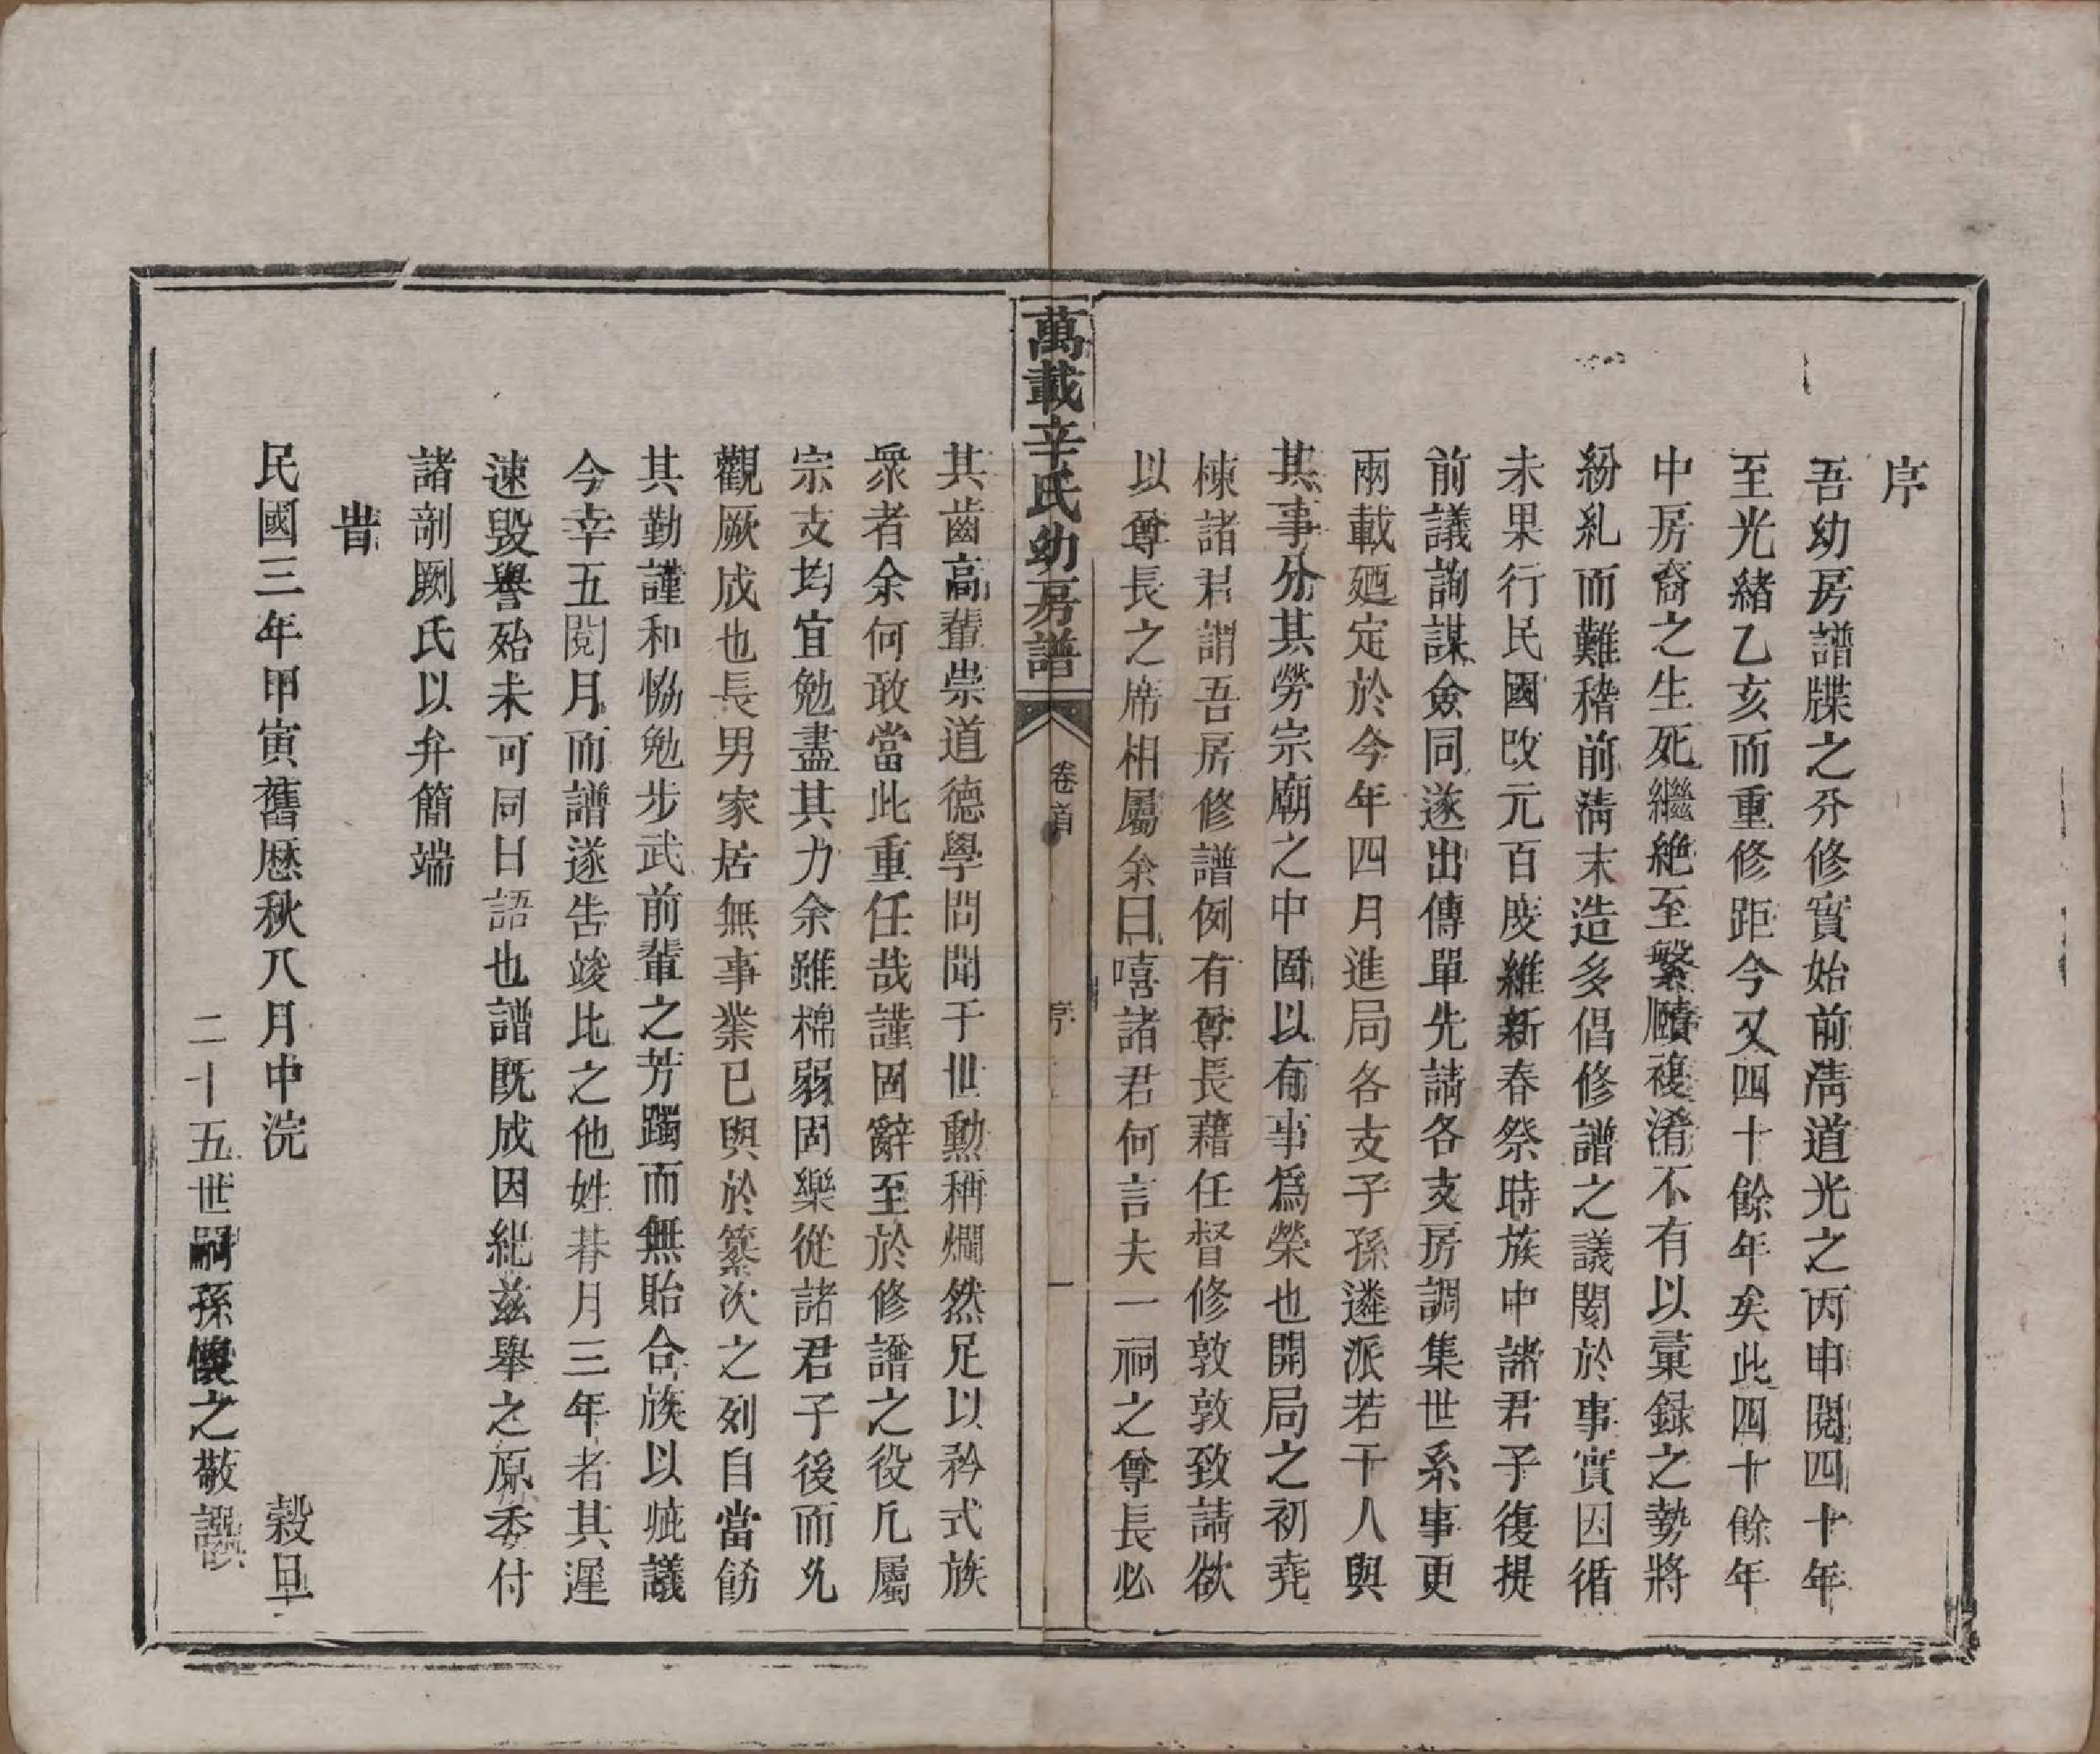 序
吾幼房譜牒之分修實始前淸道光之丙申閱四十年
至光緖乙亥而重修距今又四十餘年矣此四十餘年
中房裔之生死繼絶至繁賾複淆不有以彙録之勢將
紛糺而難稽前淸末造多倡修譜之議閡於事實因循
未果行民國改元百度維新春祭時族中諸君子復提
前議詢謀僉同遂出傳單先請各支房調集世系事更
兩載廼定於今年四月進局各支子孫遴派若干人與
其事分其勞宗廟之中固以有事爲榮也開局之初堯
棟諸君謂吾房修譜例有尊長藉任督修敦敦致請欲
以尊長之席相屬余曰嘻諸君何言夫一祠之尊長必
萬載辛氏幼房譜
卷首
序
一
其齒高輩崇道德學問聞于世勳稱爛然足以矜式族
衆者余何敢當此重任哉謹固辭至於修譜之役凡屬
宗支均宜勉盡其力余雖棉弱固樂從諸君子後而允
觀厥成也長男家居無事業已與於纂次之列自當飭
其勤謹和恊勉步武前輩之芳躅而無貽合族以疵議
今幸五閱月而譜遂告竣比之他姓朞月三年者其遲
速毀譽殆未可同日語也譜旣成因紀茲舉之原委付
諸剞劂氏以弁簡端
旹
民國三年甲寅舊厯秋八月中浣 榖旦
二十五世嗣孫懷之敬譔